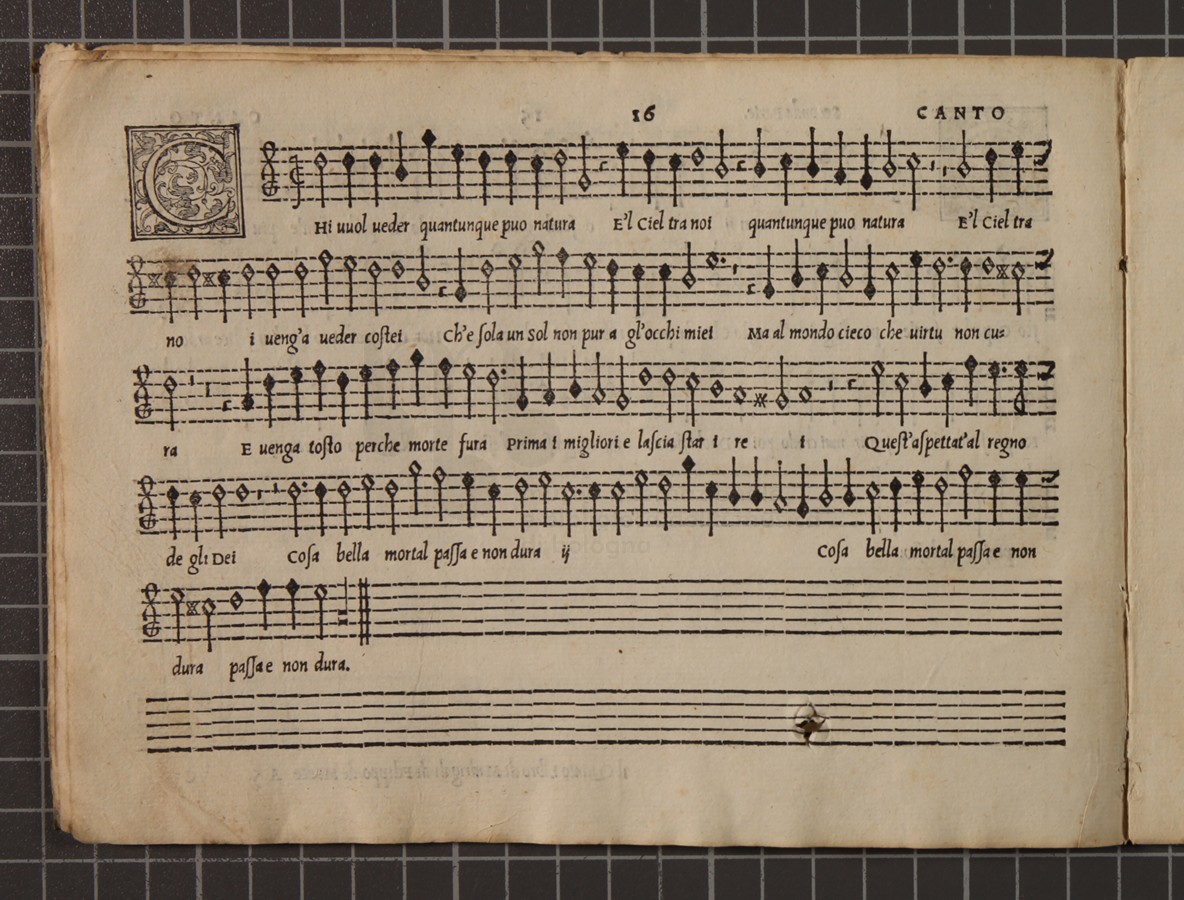 16 CANTO
CHi uuol ueder quantunque puo natura E'l Ciel tra noi quantunque puo natura E'l Ciel tra
no i ueng'a ueder costei Ch'e sola un sol non pur a gl'occhi miei Ma al mondo cieco che uirtu non cu=
ra E uenga tosto perche morte fura Prima i migliori e lascia star i re i Quest'aspettat'al regno
de gli Dei Cosa bella mortal passa e non dura ij Cosa bella mortal passa e non
dura passa e non dura.